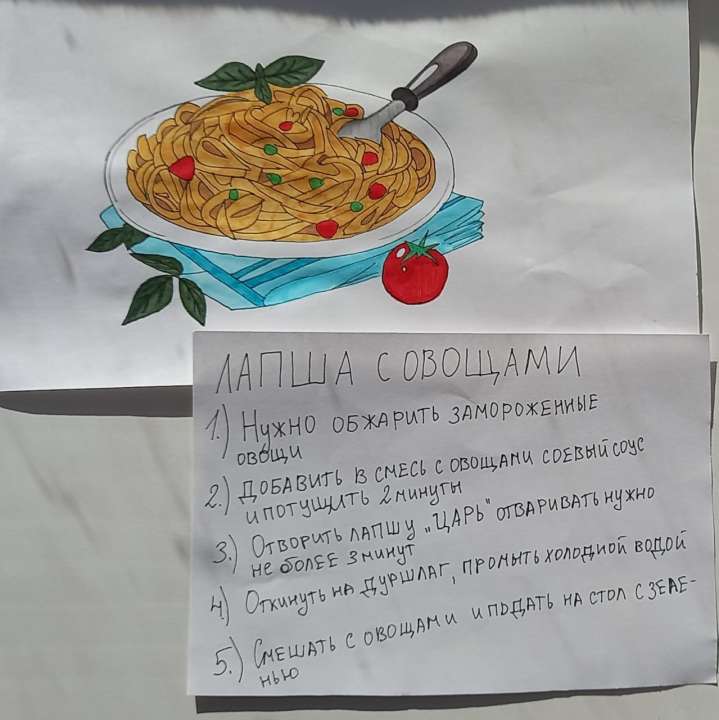 ЛАПША С ОВОЩАМИ
1.) НУЖНО ОБЖАРИТЬ ЗАМОРОЖЕННЫЕ
ОВОЩИ
2.) ДОБАВИТЬ В СМЕСЬ С ОВОЩАМИ СОЕВЫЙ СОУС
И ПОТУШИТЬ 2 МИНУТЫ
3.) ОТВОРИТЬ ЛАПШУ „ЦАРЬ" ОТВАРИВАТЬ НУЖНО
НЕ БОЛЕЕ 3 МИНУТ
4.) ОТКИНУТЬ НА ДУРШЛАГ, ПРОМЫТЬ ХОЛОДНОЙ ВОДОЙ
5.) СМЕШАТЬ С ОВОЩАМИ И ПОДАТЬ НА СТОЛ С ЗЕЛЕ-
НЬЮ